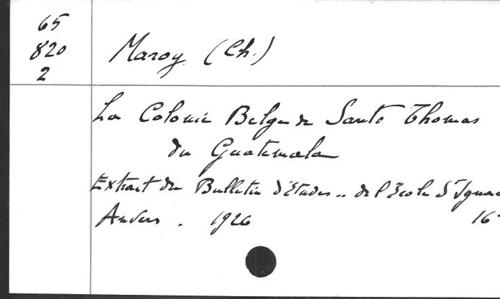 65
820
2
Maroy (Ch.)
La Colonie Belge de Santo Thomas
du Guatemala
Extrait du Bulletin d'Etudes .. de l'Ecole St Ignac
Anvers . 1926 16